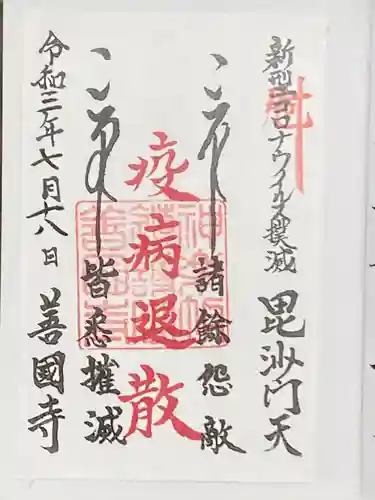 新型コロナウイルス撲滅 毘沙門天
諸餘怨敵
疫病退散
皆悉摧滅
令和三年七月十八日 善國寺